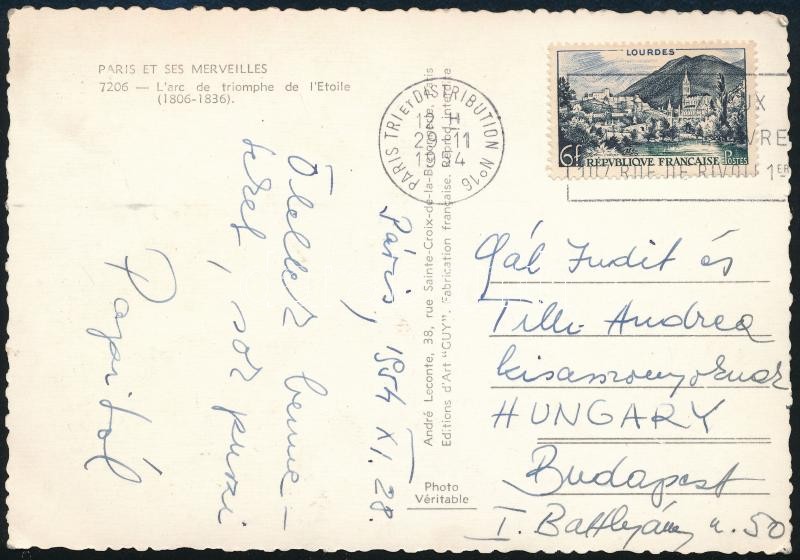 PARIS ET SES MERVEILLES
7206 — L'arc de triomphe de l'Etoile
(1806-1836).
Páris, 1954 XI. 28.
Ölellek benne-
teket, sok puszi
Papitól
André Leconte, 38, rue Sainte-Croix-de-la-Bretonnerie, Paris
Editions d'Art "GUY". Fabrication française. Reprod. interdite
Photo
Véritable
PARIS TRI ET DISTRIBUTION No 16
12 H
29-11
1954
LOURDES
6f RÉPUBLIQUE FRANÇAISE POSTES
107 RUE DE RIVOLI 1ER
Gál Judit és
Tilli Andrea
kisasszonyoknak
HUNGARY
Budapest
I. Batthyány u. 50